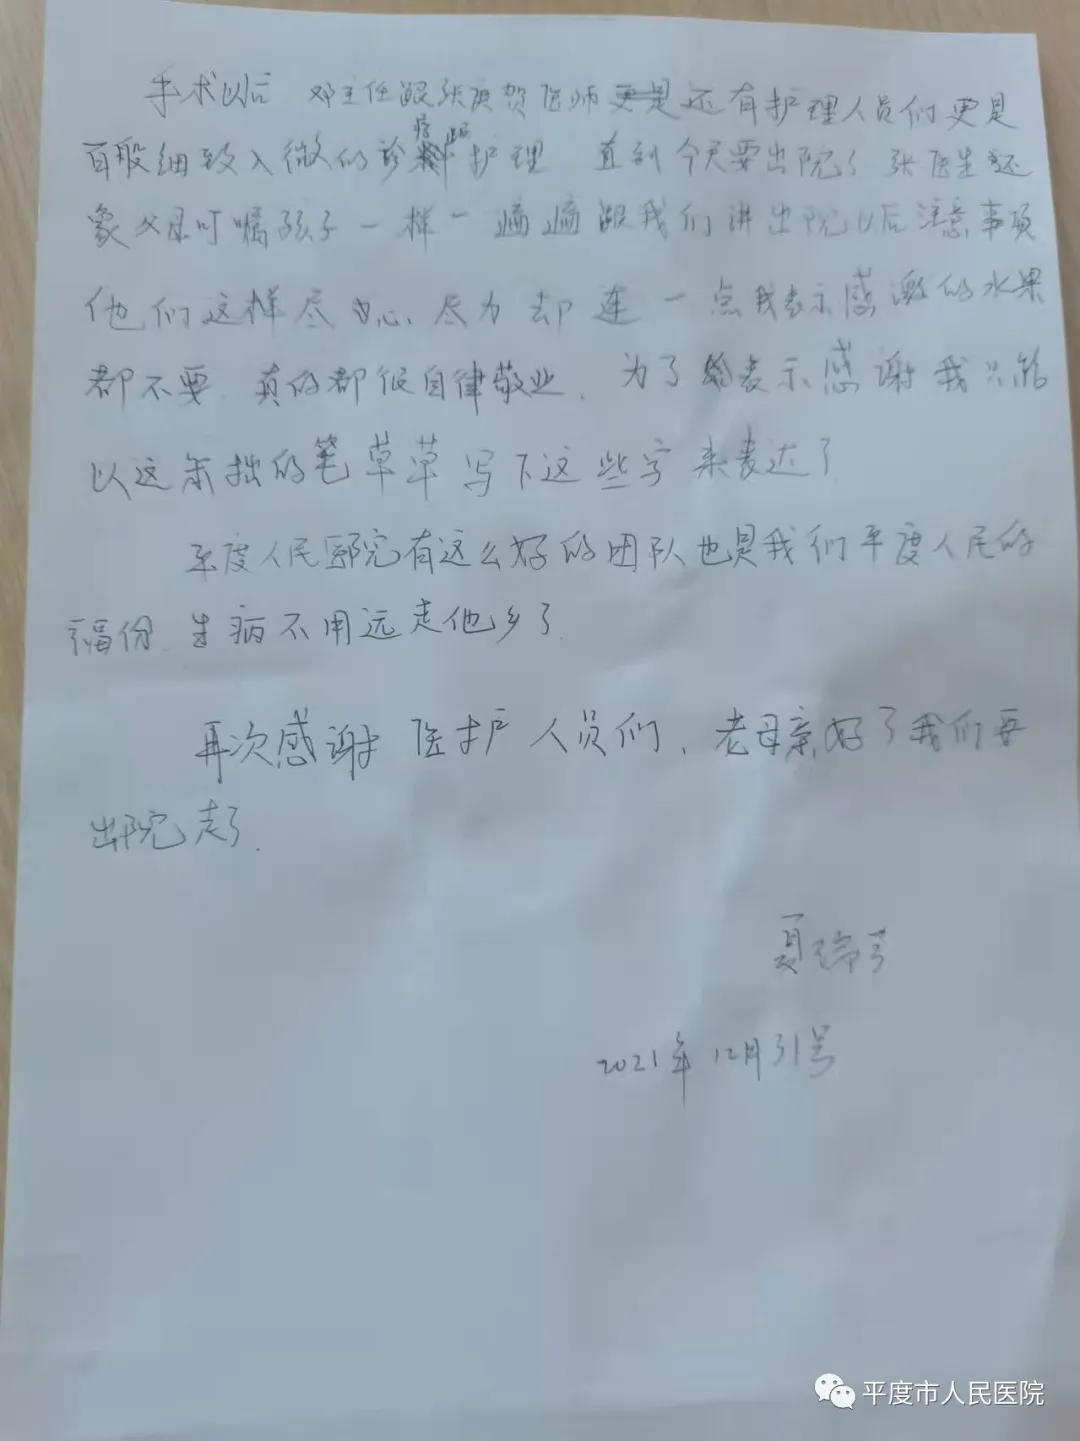 手术以后 邓主任跟张庚贺医师还有护理人员们更是
百般细致入微的诊疗跟护理 直到今天要出院了 张医生还
象父母叮嘱孩子一样一遍遍跟我们讲出院以后注意事项
他们这样尽心尽力却连一点我表示感激的水果
都不要.真的都很自律敬业.为了表示感谢我只能
以这笨拙的笔草草写下这些字来表达了
平度人民医院有这么好的团队也是我们平度人民的
福份.生病不用远走他乡了.
再次感谢医护人员们.老母亲好了我们要
出院走了.
夏瑞芳
2021年12月31号
平度市人民医院